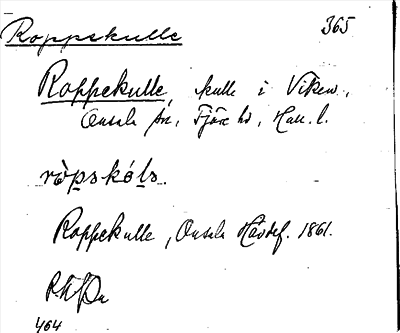 Roppskulle 365
Roppekulle, kulle i Viken,
Onsala sn, Fjäre hd, Hall. l.
ròpskóls.
Roppekulle, Onsala Hävdef. 1861.
464